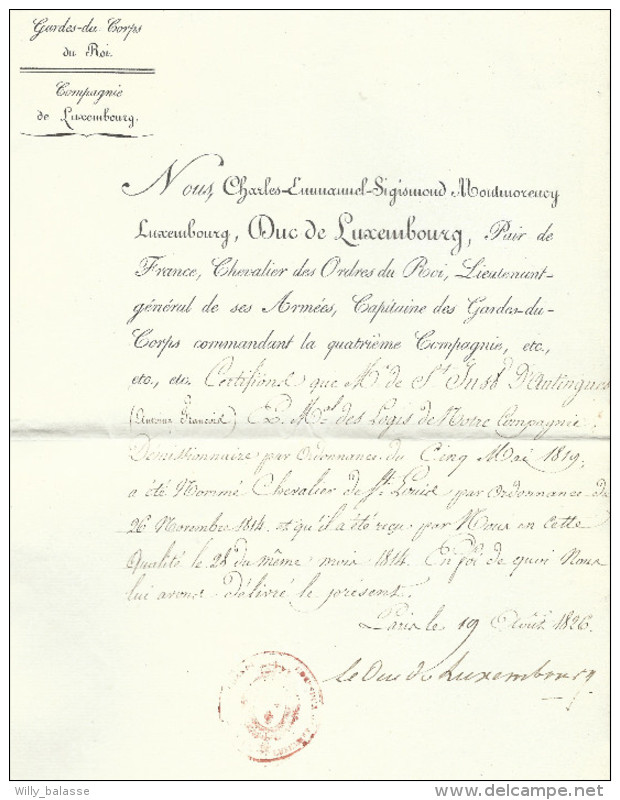 Gardes-du Corps
du Roi.
Compagnie
de Luxembourg.
Nous, Charles-Emmanuel-Sigismond Montmorency
Luxembourg, Duc de Luxembourg, Pair de
France, Chevalier des Ordres du Roi, Lieutenant-
général de ses Armées, Capitaine des Gardes-du-
Corps commandant la quatrième Compagnie, etc.,
etc., etc. Certifions que Mr. de St. Just D'Antingues
(Antoine François) Ex. Mal. des Logis de Notre Compagnie,
Démissionnaire par Ordonnance du Cinq Mai 1819,
a été Nommé Chevalier de St. Louis par Ordonnance du
26 Novembre 1814. et qu'il a été reçu par Nous en cette
Qualité le 28 du même mois 1814. En foi de quoi Nous
lui avons délivré le présent.
Paris le 19 Août 1826.
Le Duc de Luxembourg
Willy_balasse
www.delcampe.net